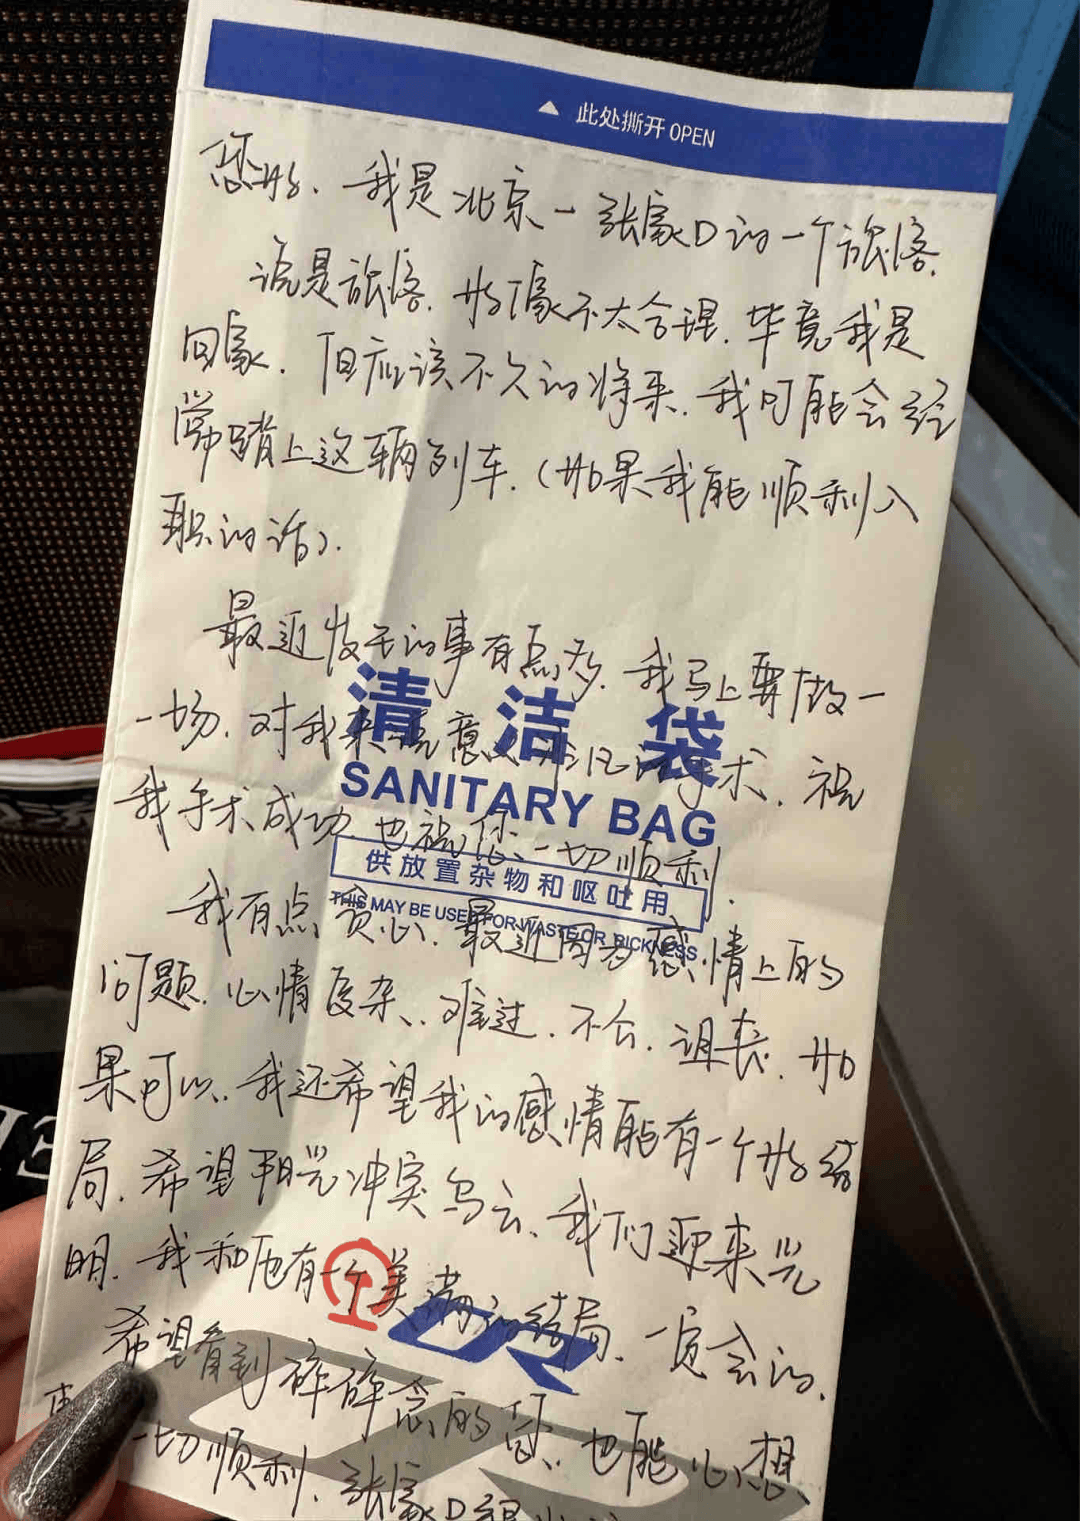 此处撕开 OPEN
您好. 我是北京—张家口的一个旅客.
说是旅客. 好像不太合理. 毕竟我是
回家. 但应该不久的将来. 我可能会经
常踏上这辆列车. (如果我能顺利入
职的话).
最近发生的事有点多. 我马上要做一
一场. 对我来说意义非凡的手术. 祝
清洁袋
SANITARY BAG
我手术成功. 也祝您、一切顺利.
供放置杂物和呕吐用
THIS MAY BE USED FOR WASTE OR SICKNESS
我有点贪心. 最近因为感情上的
问题. 心情复杂、难过. 不甘. 沮丧. 如
果可以. 我还希望我的感情能有一个好结
局. 希望阳光冲突乌云、我们迎来光
明. 我和他有一个美满的结局. 一定会的.
希望看到碎碎念的您. 也能心想
事 一切顺利. 张家口